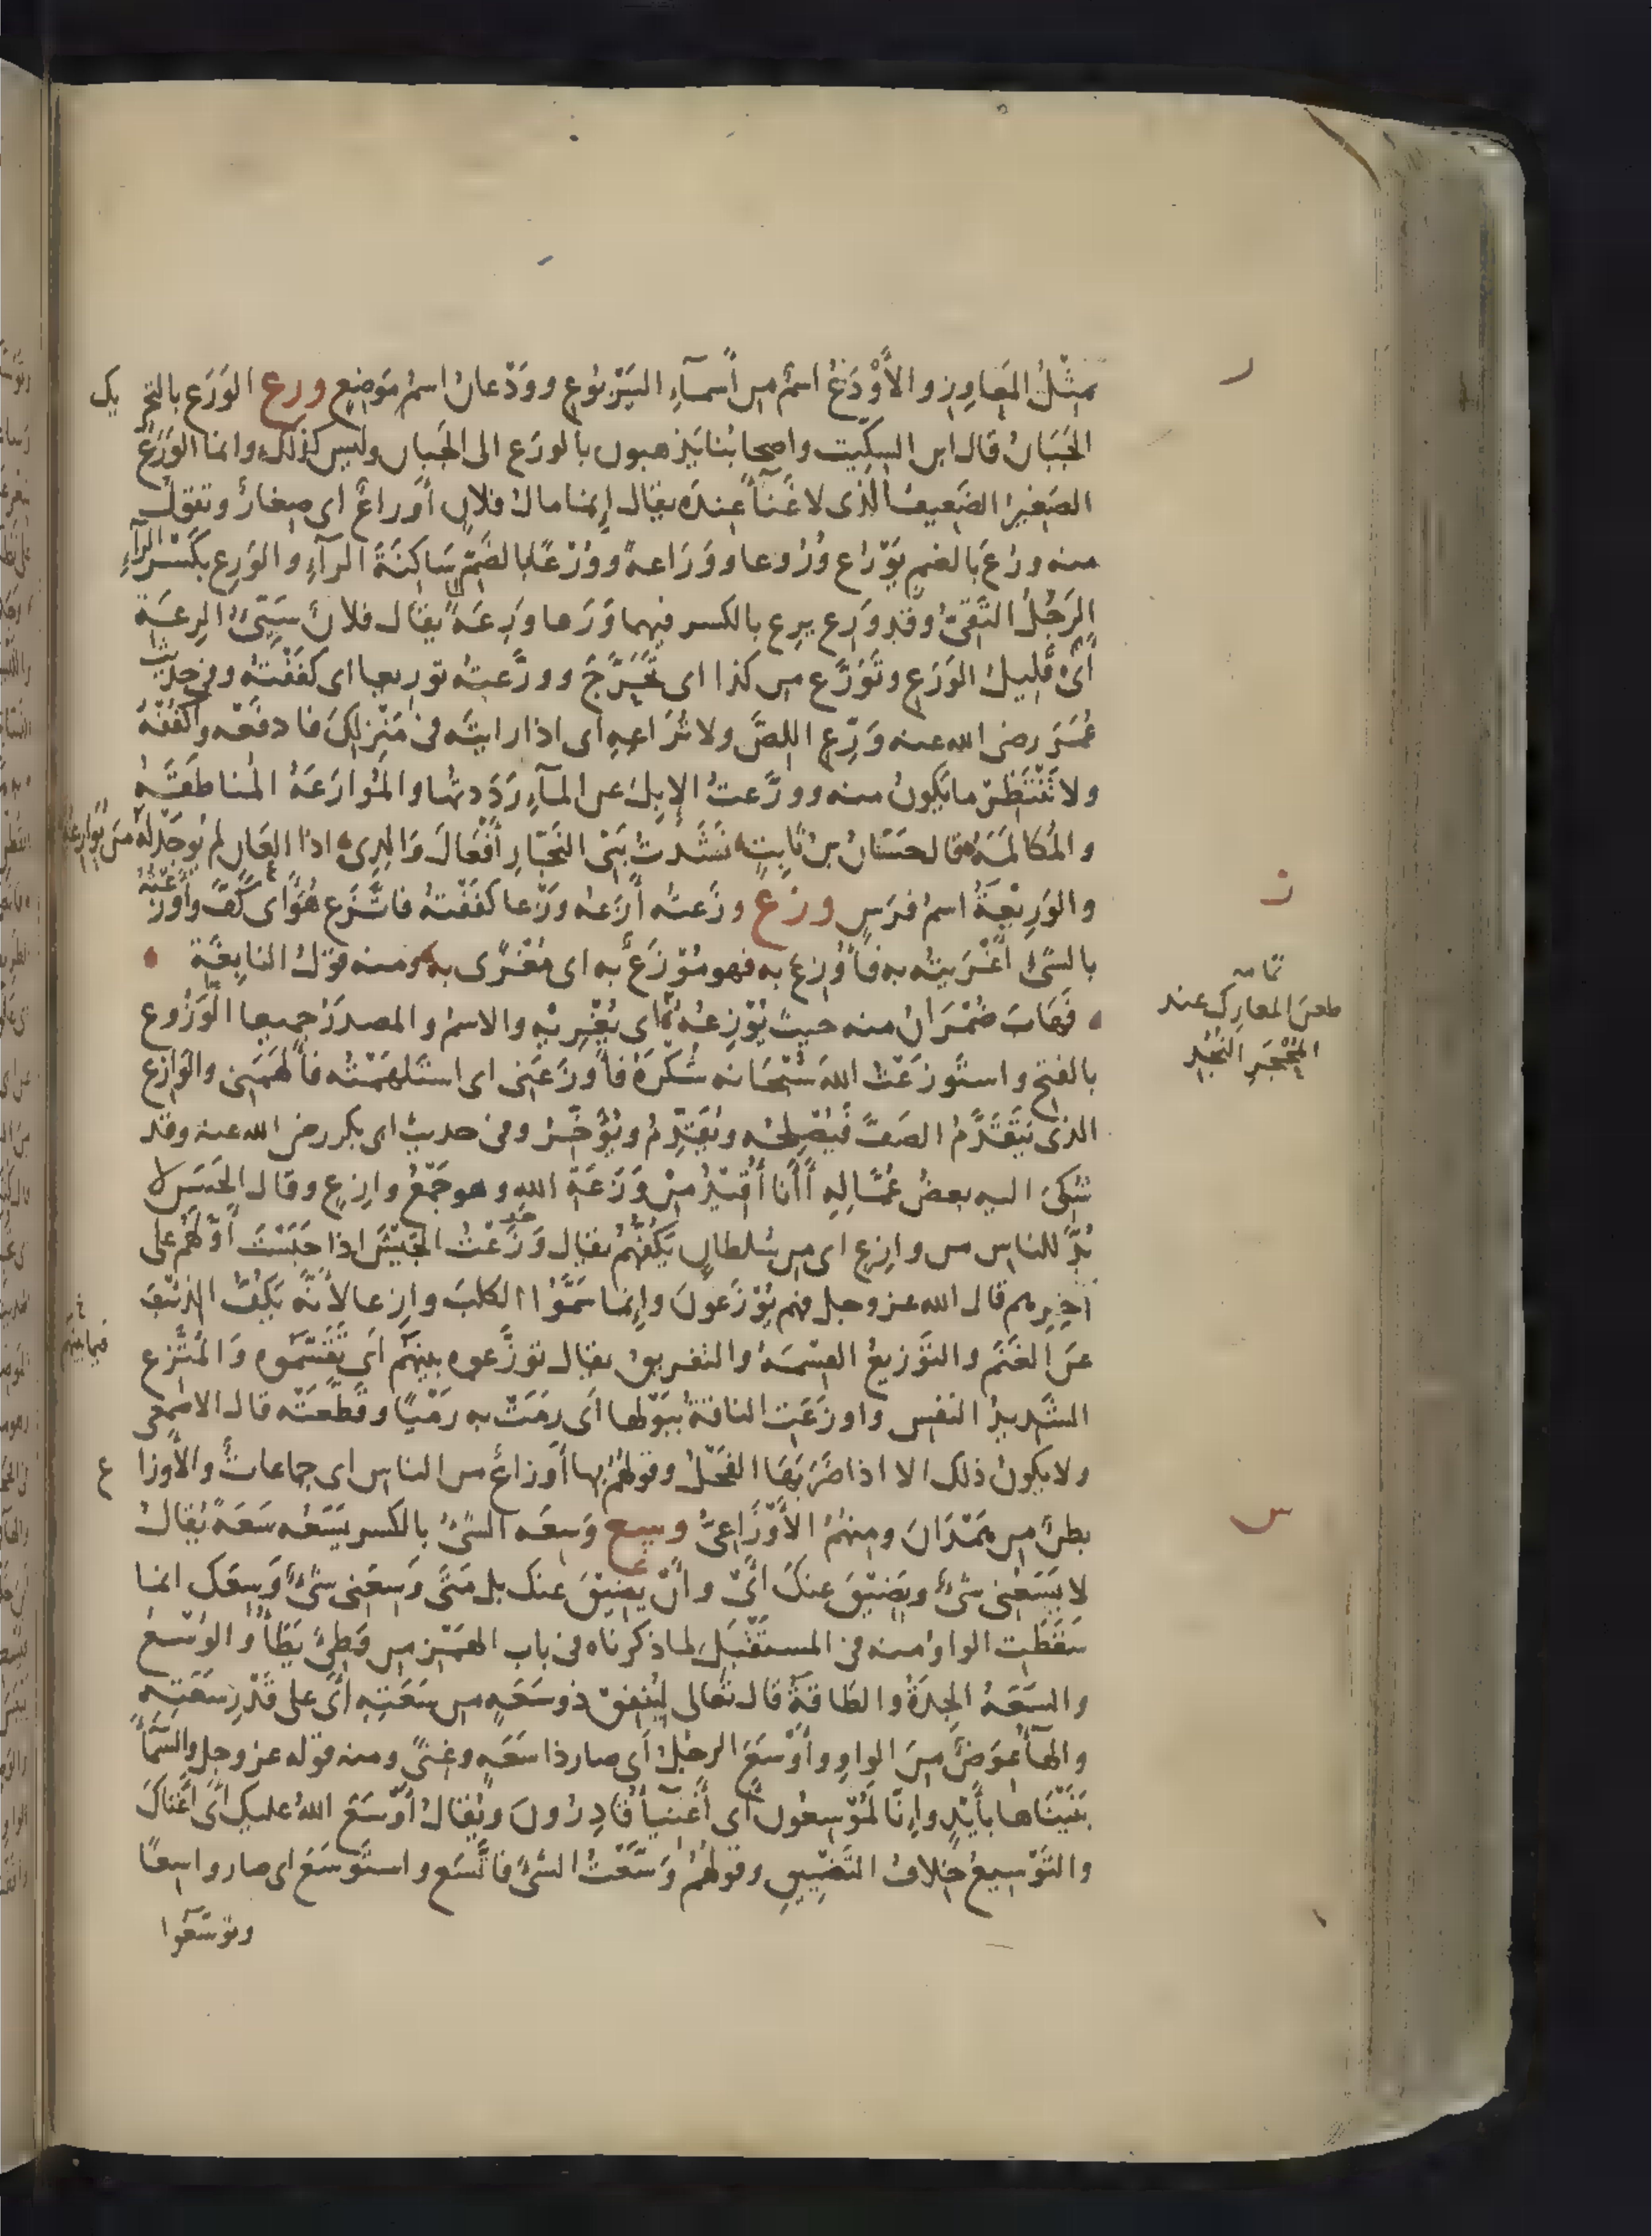 مِثْلُ المَعَاوِزِ والأَوْدَعُ اسمٌ من أسماءِ اليَرْبُوعِ ووَدْعانُ اسمُ مَوضِعٍ ورع الوَرَع بالتحريك
الجَبَانُ قال ابن السِكِّيت واصحابُنا يَذهبون بالورَع الى الجَبان وليس كذلك وانما الوَرَعُ
الصَغِيرُ الضَعِيفُ الذى لا غَنَآءَ عِندَه يقال إنما مالُ فلانٍ أَوراعٌ اى صِغارٌ وتقول
منه ورُعَ بالضمِ يَوْرُع وُرُوعا ووَرَاعةً ووُرْعًا بالضَمِّ سَاكِنَةَ الرآءِ والوَرِع بكَسْر الرآءِ
الرَجُلُ التَقِىُّ وقد وَرِع يرِع بالكسر فيهما وَرَعا ورِعَةً يقال فلانٌ سَيِّئُ الرِعَةِ
أى قَلِيلُ الوَرَعِ وتَوَرَّع من كذا اى تَحَرَّجَ وورَّعتُه توريعا اى كفَفْتُه وفى حديث
عُمَرَ رضى الله عنه وَرِّعِ اللِصَّ ولا تُرَاعِهِ اى اذا رايتَه فى مَنْزِلِكَ فادفَعْه واكْفُفْهُ
ولا تَنْتَظِرْ ما يَكونُ منه وورَّعتُ الإبِلَ عن المآءِ رَدَدتُها والمُوَارَعَةُ المُناطَقَةُ
والمُكالَمَةُ قال حسَّانُ بن ثابِتٍ نَشَدتُ بَنِى النَجّارِ أَفْعَالَ وَالِدِى اذا العَانِ لم يُوجَدْ لَهُ مَن يُوَارِعُه
والوَرِيْعَةُ اسمُ فرَسٍ وزع وزَعتُه أَزَعُه وَزْعا كفَفْتُهُ فاتَّزَع هُوَ أى كَفَّ وأَوْزَعْتُهُ
بالشئ أغْرَيتُه به فأُوزِعَ به فهو مُوْزَعٌ به اى مُغْرًى به ومنه قولُ النابِغَة
فَهَابَ ضُمْرَانُ منه حيثُ يُوْزِعُهُ اى يُغْرِيْهِ والاسمُ والمصدَرُ جميعا الوَزُوع
بالفتح واستَوزَعْتُ اللهَ سُبْحَانه شُكْرَهُ فأوزَعَنِى اى استَلهَمْتُه فألْهَمَنى والوَازِع
الذى يَتَقَدَّمُ الصَفَّ فيُصْلِحُه ويُقَدِّمُ ويُؤَخِّرُ وفى حديث ابى بكر رضى الله عنه وقد
شُكِىَ اليه بعضُ عُمَّالِهِ أأنَا أُقِيْدُ مِنْ وَزَعَةِ اللهِ وهو جَمْعُ وازِعٍ وقال الحَسَن لا
بُدَّ للناس من وازِعٍ اى من سُلطانٍ يَكُفُّهُمْ يقال وَزَعْتُ الجَيْشَ اذا حبَسْتَ أوَّلَهُمْ على
آخِرِهم قال الله عز وجل فهم يُوْزَعونَ وإنما سَمَّوُا الكلبَ وازِعا لأنَّه يَكُفُّ الذِئبَ
عن الغَنَم والتَوْزِيعُ القِسْمَةُ والتفريق يقال توزَّعوه بينَهُم اى تقَسَّمُوه والمُتَّزِع فيما بينهم
الشَديدُ النَفس واوزَعَتِ الناقةُ ببَوْلها اى رمَتْ به رَمْيًا وقَطَّعَتْه قال الاصمعى
ولا يكونُ ذلك الا اذا ضرَبَها الفَحْلُ وقولهُمْ بها أوزاعٌ من الناس اى جماعاتٌ والأوزاع
بطنٌ من هَمْدَانَ ومِنهُمُ الأَوْزَاعِىُّ وسع وَسِعَه الشئُ بالكسر يَسَعُه سَعَةً يُقالُ
لا يَسَعُنِى شئٌ ويَضِيْقَ عنكَ اى وأن يَضِيقَ عنك بل متى وَسِعَنى شئٌ وَسِعَك انما
سَقَطَتِ الواوُ منه فى المستَقْبَلِ لما ذكرناه فى باب الهَمْز من وَطِئَ يَطَأُ والوُسْعُ
والسَعَةُ الجِدَةُ والطَاقةُ قال تعالى لِيُنفِقْ ذو سَعَةٍ من سَعَتِهِ أى على قَدْرِ سَعَتِهِ
والهآءُ عِوَضٌ مِنَ الواوِ وأَوْسَعَ الرجُلُ أى صار ذا سَعَةٍ وغِنًى ومنه قوله عز وجل والسَمآءَ
بَنَيْنَاها بأَيْدٍ وإنَّا لَمُوْسِعُونَ أى أغْنِيآءُ قَادِرُونَ ويُقالُ أوْسَعَ اللهُ عليك أى أغناكَ
والتَوْسِيعُ خِلافُ التَضْيِيقِ وقولهُمْ وَسَّعْتُ الشئَ فاتَّسَع واستَوسَعَ اى صار واسعًا
وتوسَّعُوا
ر
ز
تمامه
طعنَ المعارِكِ عند
المُحْجَرِ النَجُدِ
س